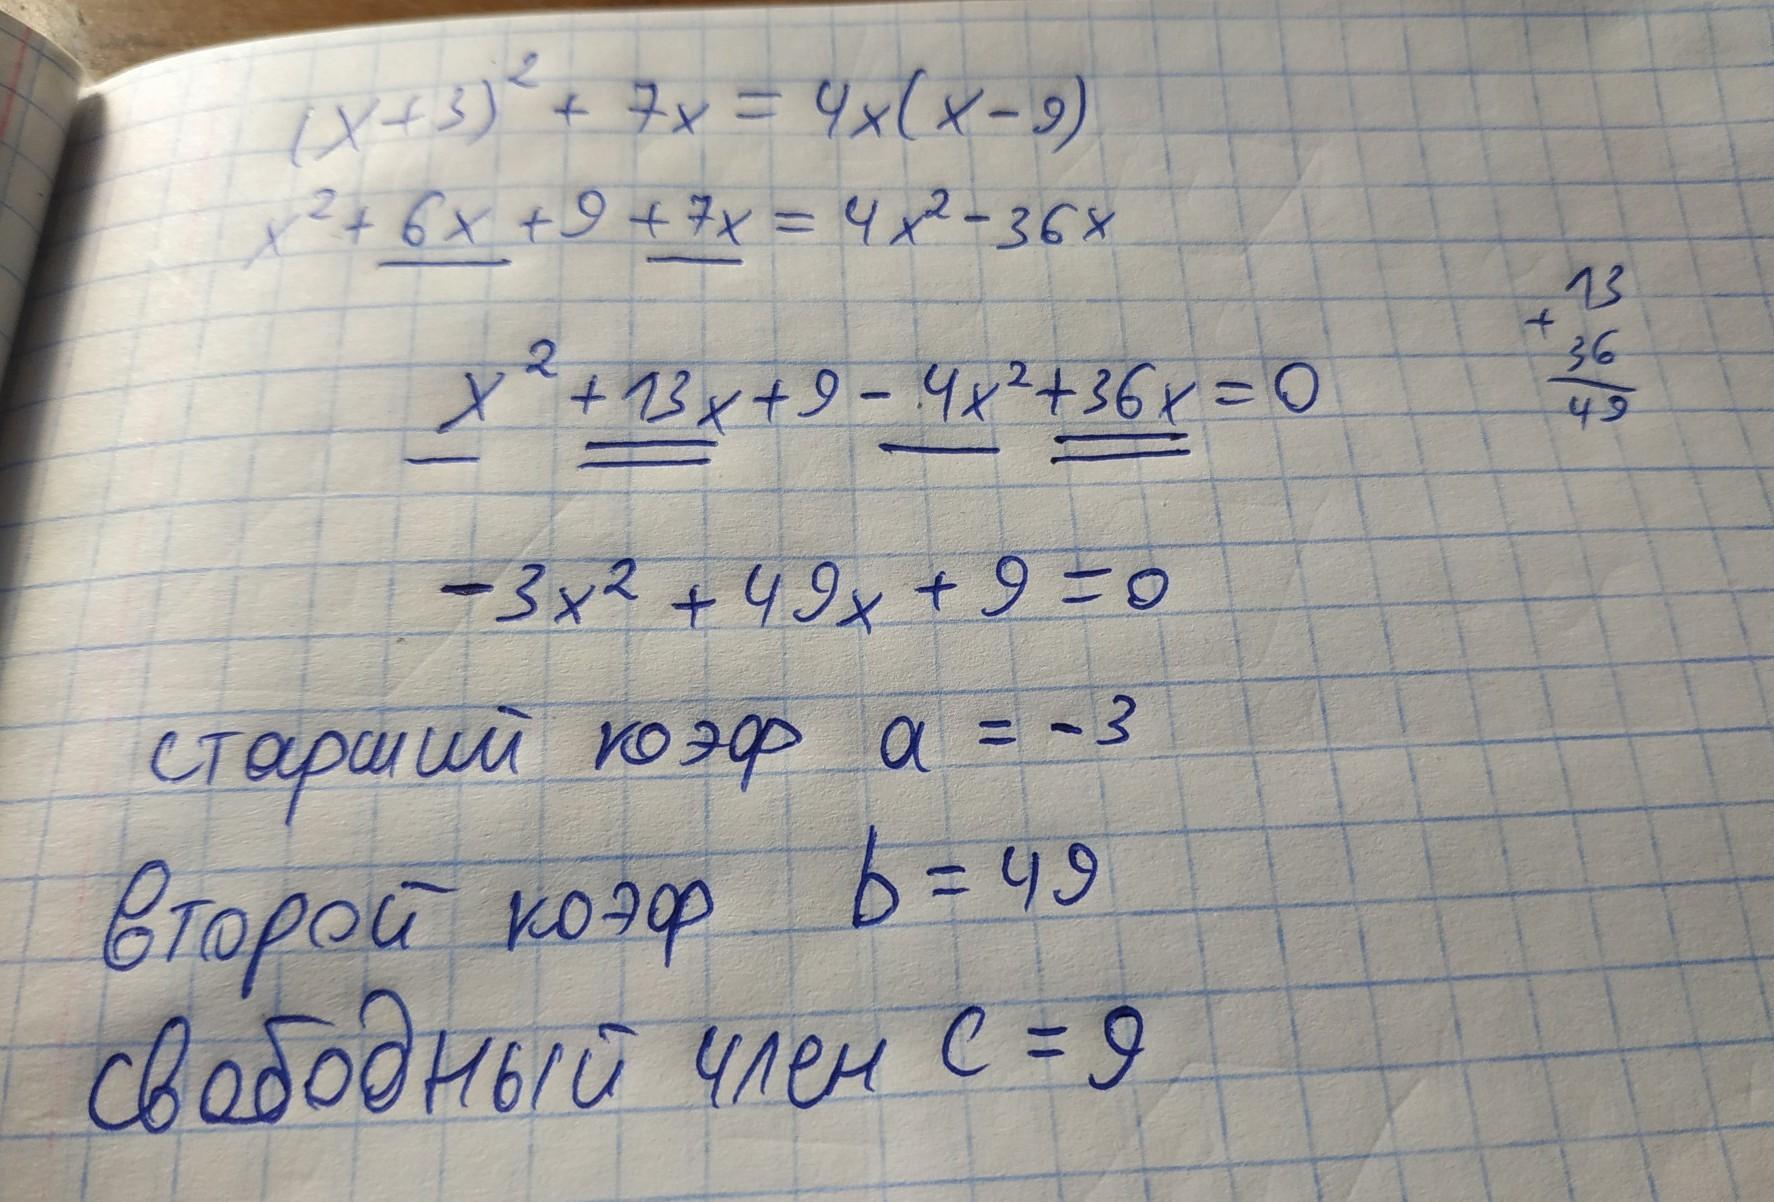 (x+3)² + 7x = 4x(x-9)
x² + 6x + 9 + 7x = 4x² - 36x
13
+
36
49
x² + 13x + 9 - 4x² + 36x = 0
-3x² + 49x + 9 = 0
старший коэф a = -3
второй коэф b = 49
свободный член c = 9